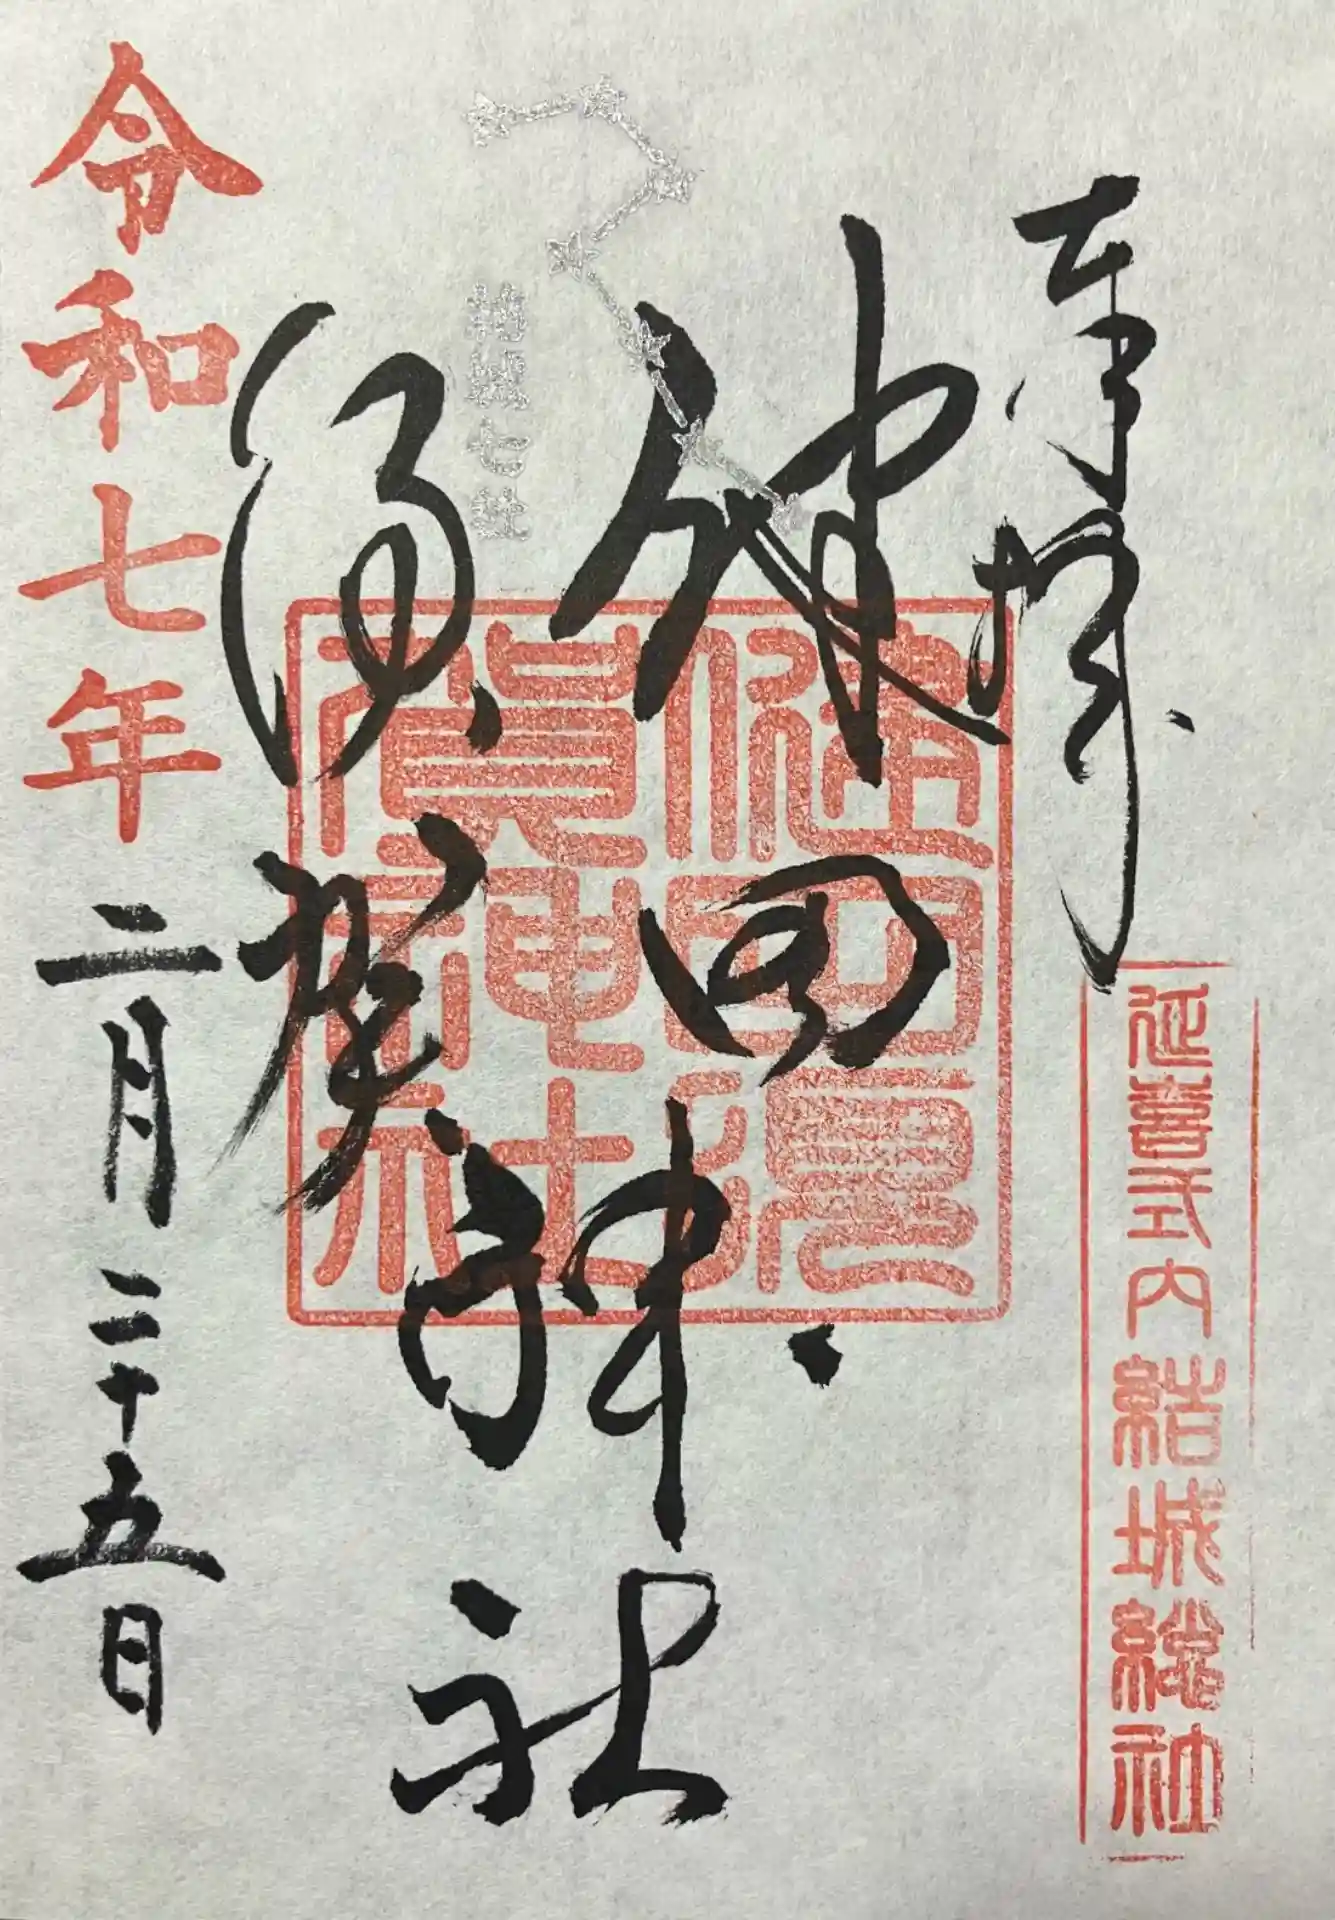 奉拝
延喜式内結城総社
健田
須賀
神社
健田須
賀神社
結城七社
令和七年二月二十五日